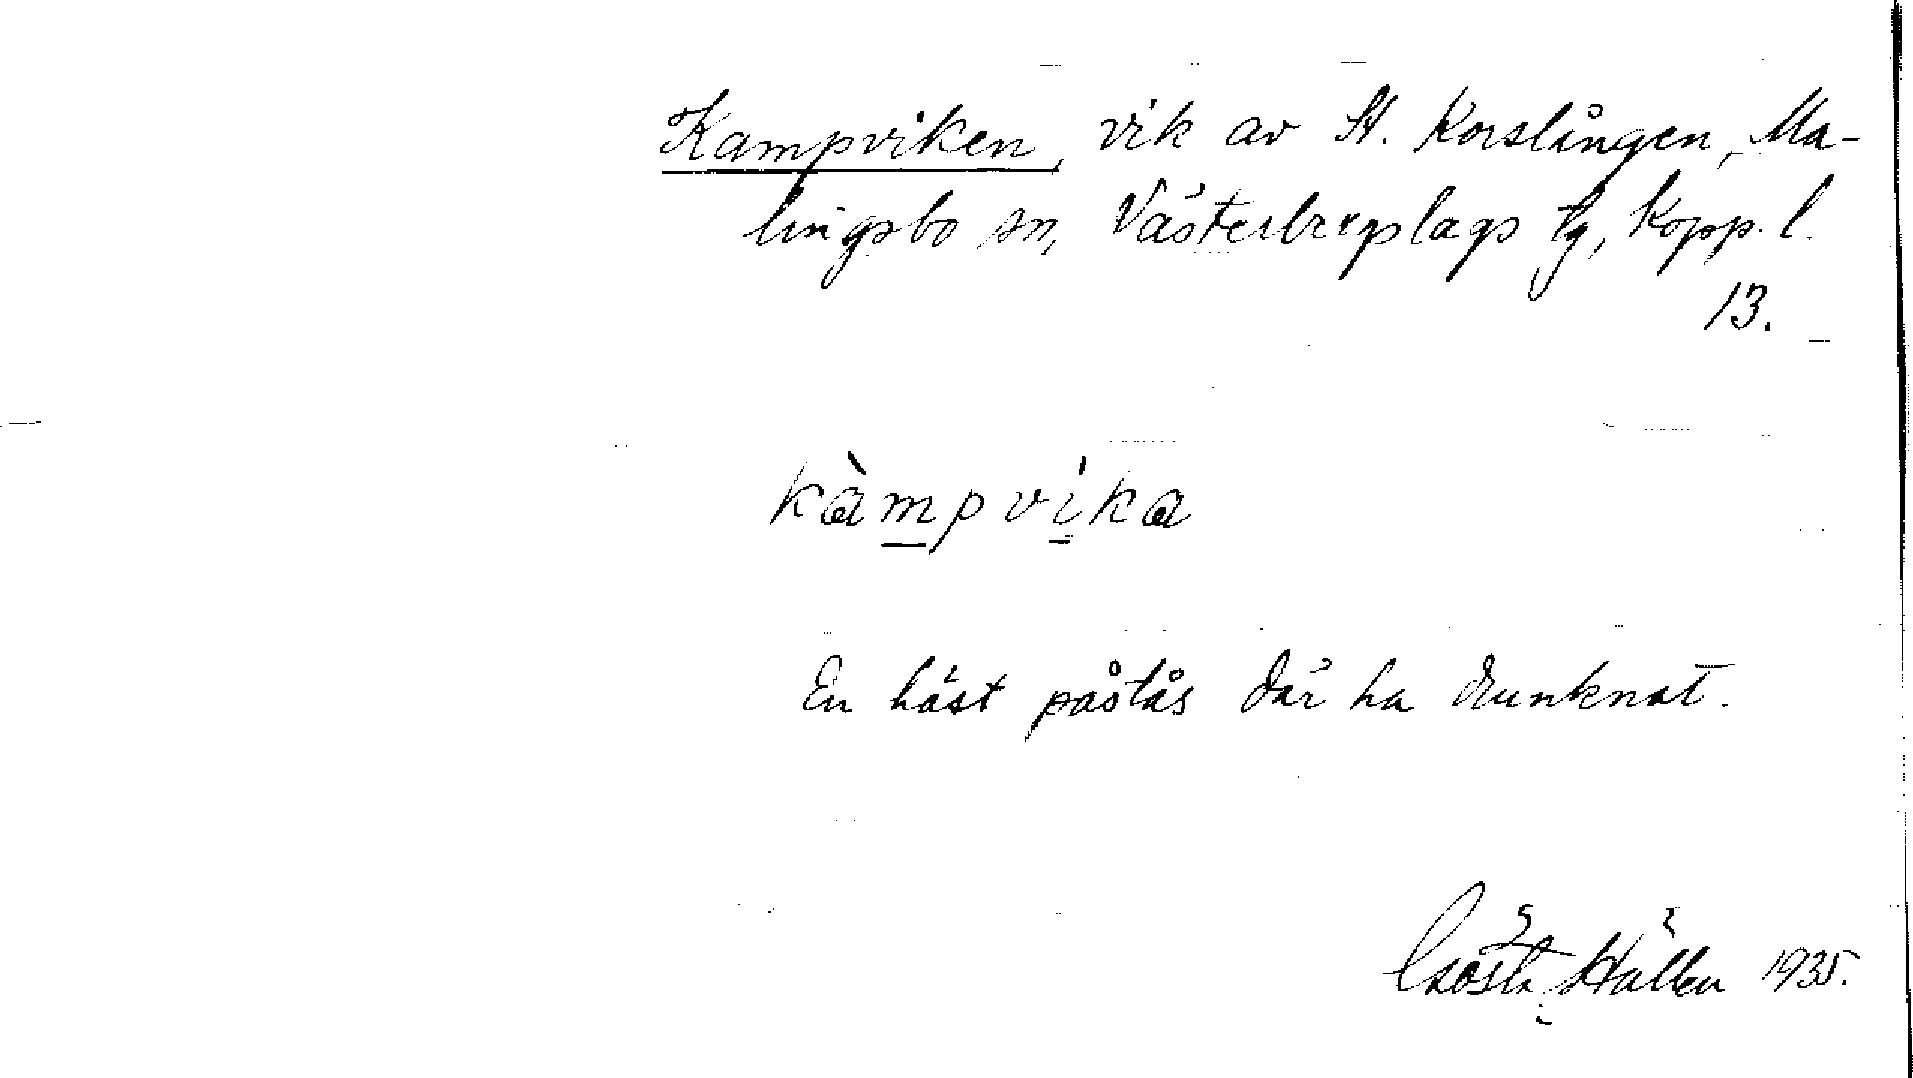 Kampviken, vik av St. Korslången, Ma-
lingsbo sn, Västerbergslags tg, Kopp. l.
13.
kàmpvika
En häst påstås där ha drunknat.
Gösta Hällen 1935.